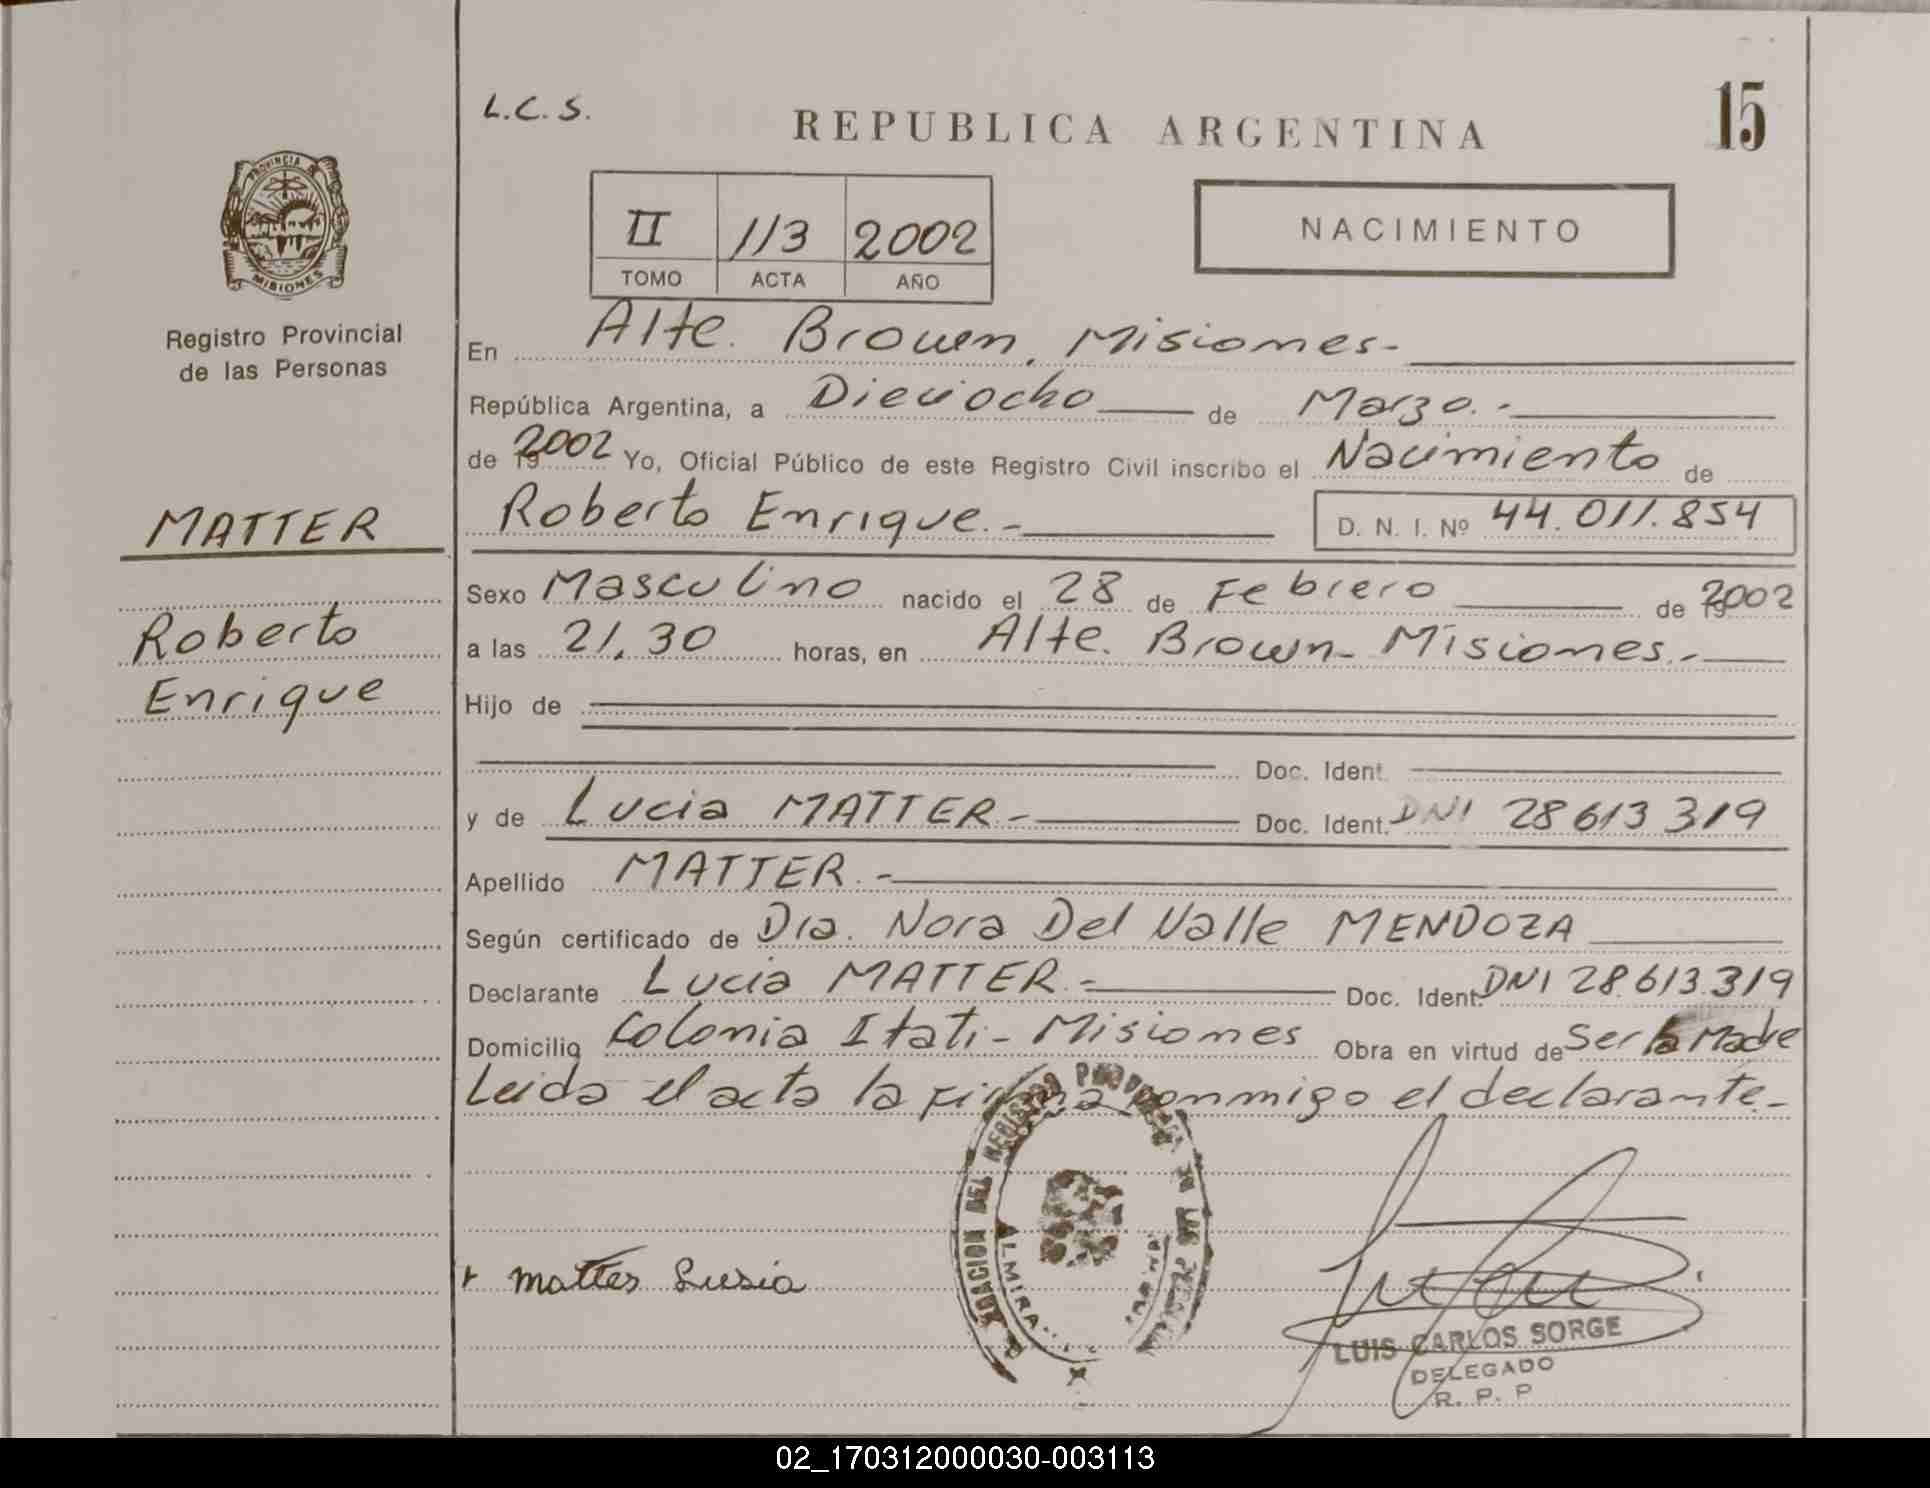 L.C.S.
REPUBLICA ARGENTINA
15
PROVINCIA DE
MISIONES
Registro Provincial
de las Personas
II 113 2002
TOMO ACTA AÑO
NACIMIENTO
En Alte. Brown, Misiones.-
República Argentina, a Dieciocho de Marzo.-
de 2002 Yo, Oficial Público de este Registro Civil inscribo el Nacimiento de
Roberto Enrique.- D. N. I. Nº 44.011.854
MATTER
Roberto
Enrique
Sexo Masculino nacido el 28 de Febrero de 2002
a las 21,30 horas, en Alte. Brown- Misiones.-
Hijo de
Doc. Ident.
y de Lucia MATTER.- Doc. Ident. DNI 28613319
Apellido MATTER.-
Según certificado de Dra. Nora Del Valle MENDOZA
Declarante Lucia MATTER.- Doc. Ident. DNI 28.613.319
Domicilio Colonia Itati- Misiones Obra en virtud de Ser la Madre
Leida el acta la firma conmmigo el declarante.-
DEL REGISTRO DE LAS
ALMIRA
Lusia
LUIS CARLOS SORGE
DELEGADO
R. P. P
02_170312000030-003113